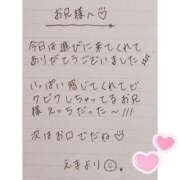 お兄様へ♡
今日は遊びに来てくれて
ありがとうございました!!!
いっぱい感じてくれてビ
クビクしちゃってるお兄
様えっちだった〜!!!
次はお口でだね♡
えまより☺